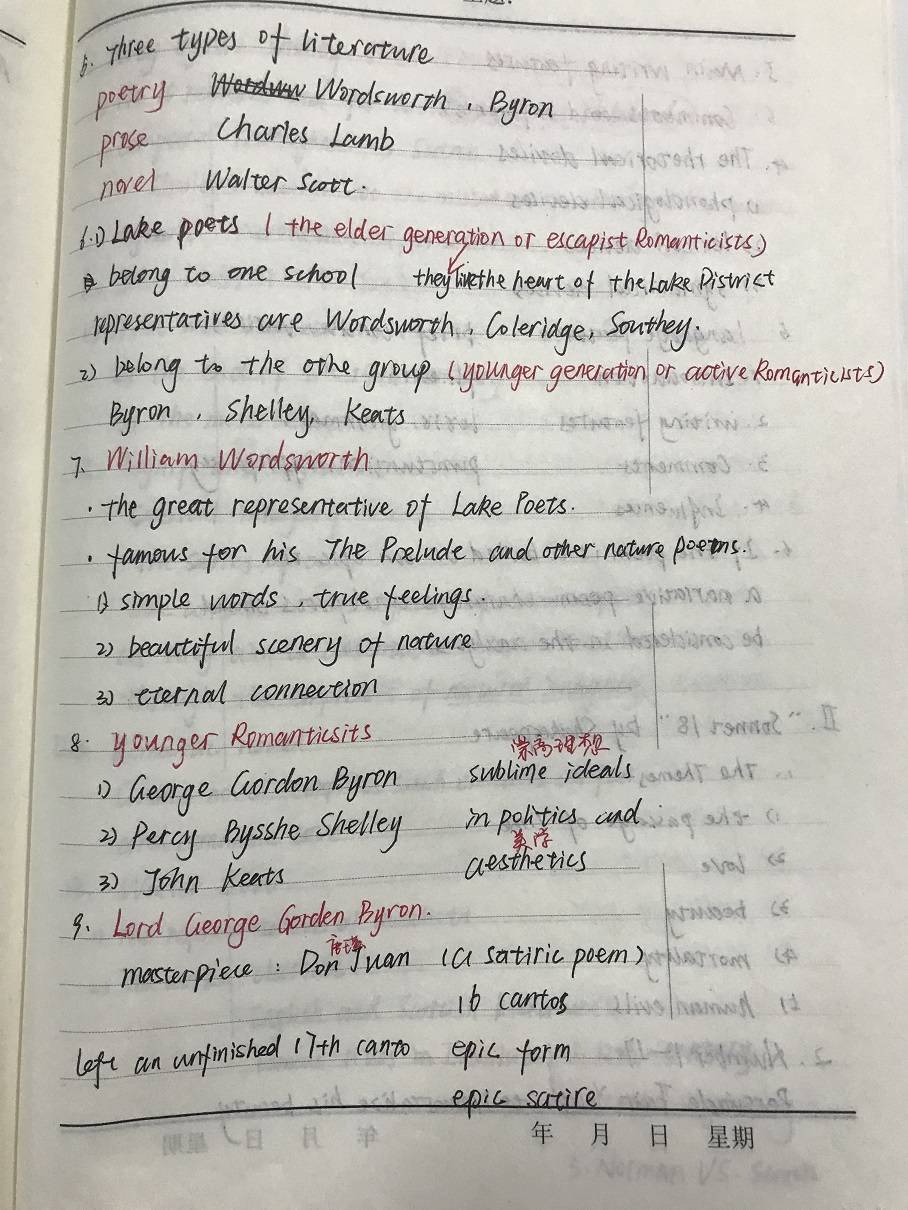 5. Three types of literature
poetry Wordsworth, Byron
prose Charles Lamb
novel Walter Scott.
6.1) Lake poets (the elder generation or escapist Romanticists)
belong to one school they live the heart of the Lake District
representatives are Wordsworth, Coleridge, Southey.
2) belong to the othe group (younger generation or active Romanticists)
Byron, Shelley, Keats
7. William Wordsworth
· the great representative of Lake Poets.
· famous for his The Prelude and other nature poems.
1) simple words, true feelings.
2) beautiful scenery of nature
3) eternal connection
8. younger Romanticsits
崇高理想
1) George Gordon Byron sublime ideals
2) Percy Bysshe Shelley in politics and
美学
3) John Keats aesthetics
9. Lord George Gorden Byron.
唐璜
masterpiece: Don Juan (a satiric poem)
16 cantos
left an unfinished 17th canto epic form
epic satire
年 月 日 星期